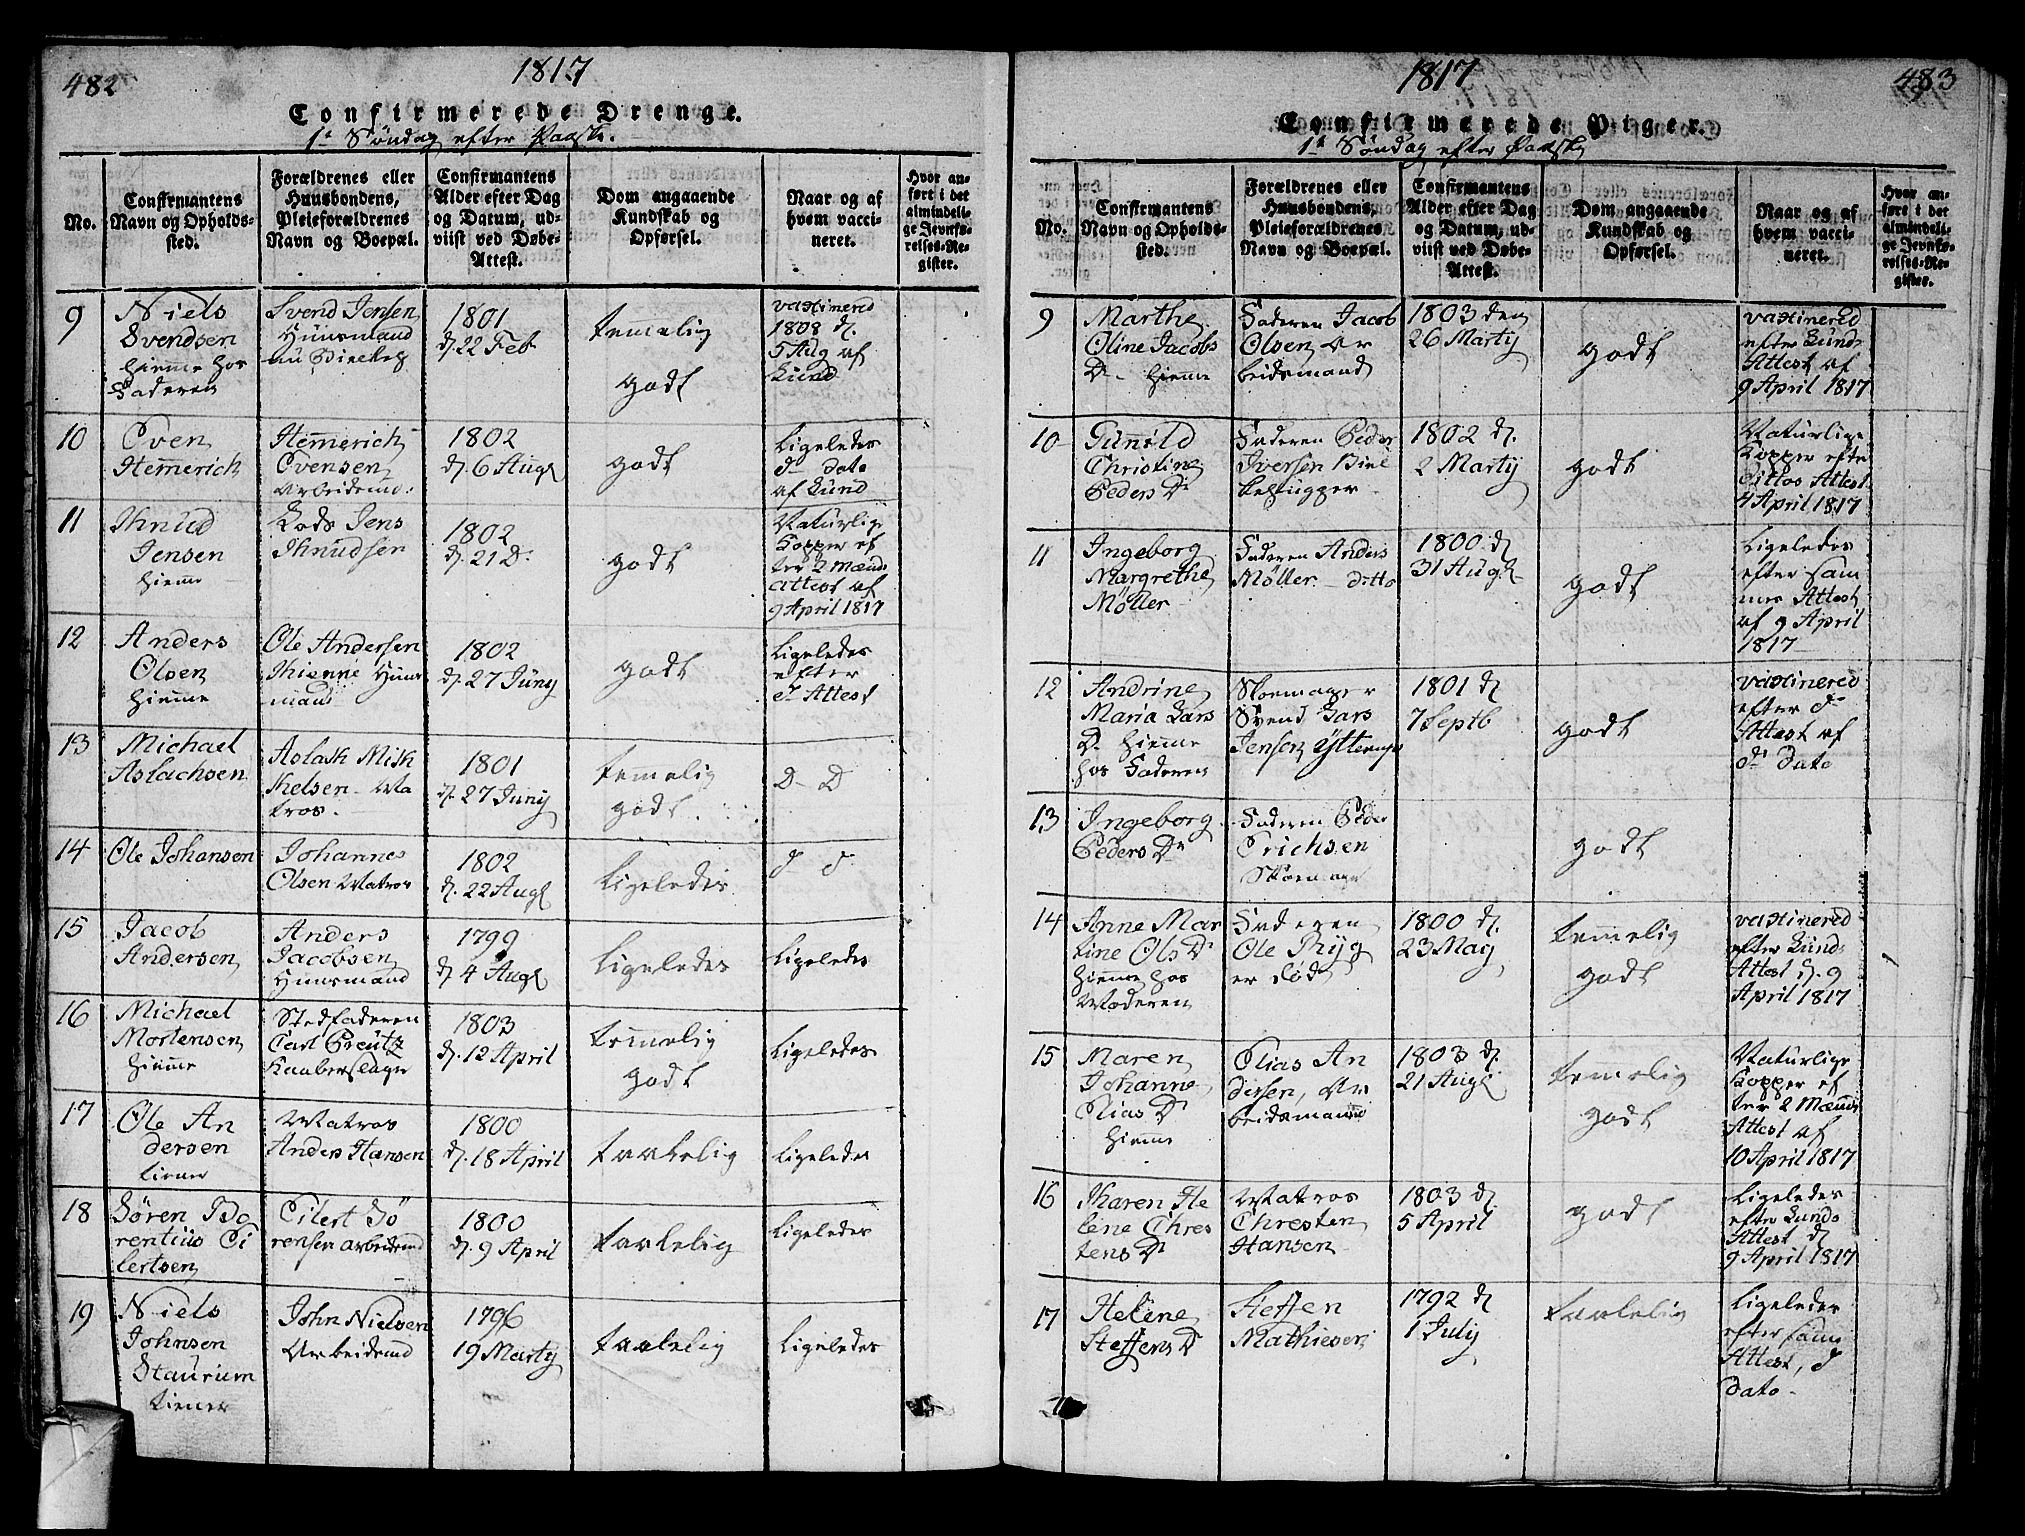 482
1817
Confirmerede Drenge.
1t Søndag efter Paaske.
No.
Confirmantens
Navn og Opholds-
sted.
Forældrenes eller
Huusbondens,
Pleieforældrenes
Navn og Boepæl.
Confirmantens
Alder efter Dag
og Datum, ud-
viist ved Døbe-
Attest.
Dom angaaende
Kundskab og
Opførsel.
Naar og af
hvem vacci-
neret.
Hvor an-
ført i det
almindeli-
ge Jevnfø-
relses-Re-
gister.
9
Niels
Svendsen
hiemme hos
Faderen
Svend Jensen
Huusmand
1801
d. 22 Feb
temmelig
godt
vaxinered
1808 d.
5 Aug af
Lund
10
Even
Hemmerich
Hemmerich
Evensen
Arbeidsmd:
1802
d. 6 Augt
godt
Ligeledes
do dato
af Lund
11
Khnud
Jensen
hiemme
Lods Jens
Khnudsen
1802
d. 21 D.
godt
Naturlige
Kopper ef
ter 2 Mænds
Attest af
9 April 1817
12
Anders
Olsen
hiemme
Ole Andersen
Huus
mand
1802
d. 27 Juny
godt
Ligeledes
efter
do Attest
13
Michael
Aslachsen
Aslak Mik
kelsen Ma
tros.
1801
d. 27 Juny
temmelig
godt.
D- D
14
Ole Johansen
Johannes
Olsen Matros
1802
d. 22 Augt
Ligeledes
d d
15
Jacob
Andersen
Anders
Jacobsen
Huusmand
1799
d. 4 Augt
Ligeledes
Ligeledes
16
Michael
Mortensen
hiemme
Stedfaderen
Carl Creutz
Kaaberslager
1803
d. 12 April
temmelig
godt
Ligeledes
17
Ole An
dersen
tiener
Matros
Anders Hansen
1800
d. 18 April
taalelig
Ligeledes
18
Søren Lo
rentius Ei
lertsen
Eilert Sø
rensen Arbeidsmd
1800
d. 9 April
taalelig
Ligeledes
19
Niels
Johnsen
Staurum
tiener
John Nielsen
Arbeidsmd
1796
19 Marty
taalelig
Ligeledes
483
1817
Confirmerede Piger.
1t Søndag efter Paaske
No.
Confirmantens
Navn og Opholds-
sted.
Forældrenes eller
Huusbondens,
Pleieforældrenes
Navn og Boepæl.
Confirmantens
Alder efter Dag
og Datum, ud-
viist ved Døbe-
Attest.
Dom angaaende
Kundskab og
Opførsel.
Naar og af
hvem vacci-
neret.
Hvor an-
ført i det
almindeli-
ge Jevnfø-
relses-Re-
gister.
9
Marthe
Oline Jacobs
Dr hiemme
Faderen Jacob
Olsen Ar
beidsmand
1803 den
26 Marty
godt
vaxinered
efter Lunds
Attest af
9 April 1817
10
Gunild
Christine
Peders Dr
Faderen Peder
Iversen
1802 d.
2 Marty
godt
Naturlige
Kopper efter
dittos Attest
4 April 1817
11
Ingeborg
Margrethe
Møller
Faderen Anders
Møller ditto
1800 d
31 Augt
godt
Ligeledes
efter sam
mes Attest
af 9 April
1817
12
Andrine
Maria Lars
Dr hiemme
hos Faderen
Skoemager
Svend Lars
Jensen
1801 d
7 Septb
godt
vaxinered
efter do
Attest af
do dato
13
Ingeborg
Peders Dr
Faderen Peder
Erichsen
Skoemager
godt
14
Anne Mar
tine Ols Dr
hiemme hos
Moderen
Faderen
Ole Thyg
er død
1800 d.
23 May
temmelig
godt
vaxinered
efter Lunds
Attest d. 9
April 1817
15
Maren
Johanne
Elias Dr
hiemme
Elias An
dersen, Ar
beidsmand
1803 d.
21 Augt
temmelig
godt
Naturlige
Kopper ef
ter 2 Mænds
Attest af
10 April 1817
16
Karen He
lene Chres
tens Dr
Matros
Chresten
Hansen
1803 d.
5 April
godt
Ligeledes
efter Lunds
Attest d
9 April 1817
17
Helene
Steffens Dr
Steffen
Mathiesen
1792 d
1 July
taalelig
Ligeledes
efter samme
Attest, d
dato